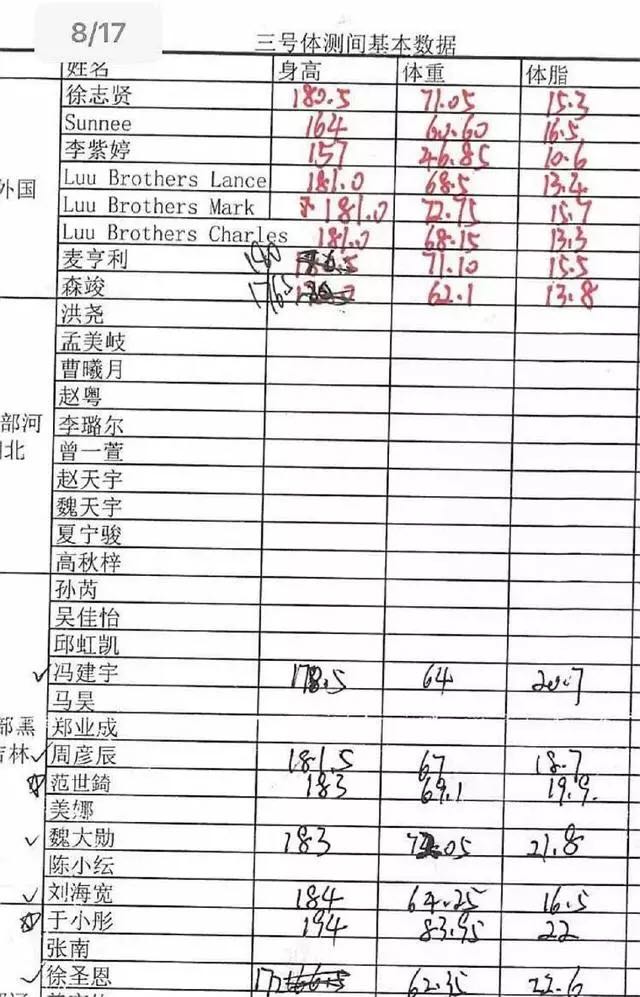 8/17
三号体测间基本数据
姓名 身高 体重 体脂
徐志贤 180.5 71.05 15.3
Sunnee 164 60.60 16.5
李紫婷 157 46.85 10.6
外国 Luu Brothers Lance 181.0 68.5 13.4
Luu Brothers Mark 181.0 72.75 15.7
Luu Brothers Charles 181.0 68.15 13.3
麦亨利 180 71.10 15.5
森竣 176.5 62.1 13.8
洪尧
孟美岐
曹曦月
赵粤
部河 李璐尔
北 曾一萱
赵天宇
魏天宇
夏宁骏
高秋梓
孙芮
吴佳怡
邱虹凯
✓ 冯建宇 178.5 64 20.7
马昊
部黑 郑业成
吉林 ✓ 周彦辰 181.5 67 18.7
范世錡 183 69.1 19.9
美娜
✓ 魏大勋 183 21.8
陈小纭
✓ 刘海宽 184 64.25 16.5
于小彤 194 83.95 22
张南
✓ 徐圣恩 172 62.35 22.6